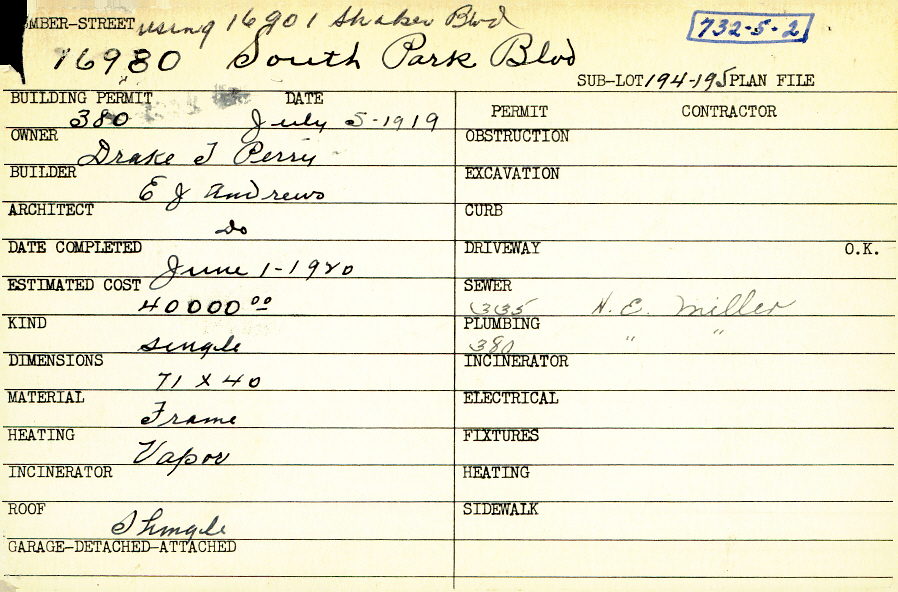 UMBER-STREET using 16901 Shaker Blvd
732-5-2
16980 South Park Blvd
SUB-LOT 194-195 PLAN FILE
BUILDING PERMIT DATE
380 July 5-1919
OWNER
Drake T Perry
BUILDER
E J Andrews
ARCHITECT
Do
DATE COMPLETED
June 1-1920
ESTIMATED COST
40000 00
KIND
single
DIMENSIONS
71 X 40
MATERIAL
Frame
HEATING
Vapor
INCINERATOR
ROOF
Shingle
GARAGE-DETACHED-ATTACHED
PERMIT CONTRACTOR
OBSTRUCTION
EXCAVATION
CURB
DRIVEWAY O.K.
SEWER
335 H. E. Miller
PLUMBING
380 " "
INCINERATOR
ELECTRICAL
FIXTURES
HEATING
SIDEWALK